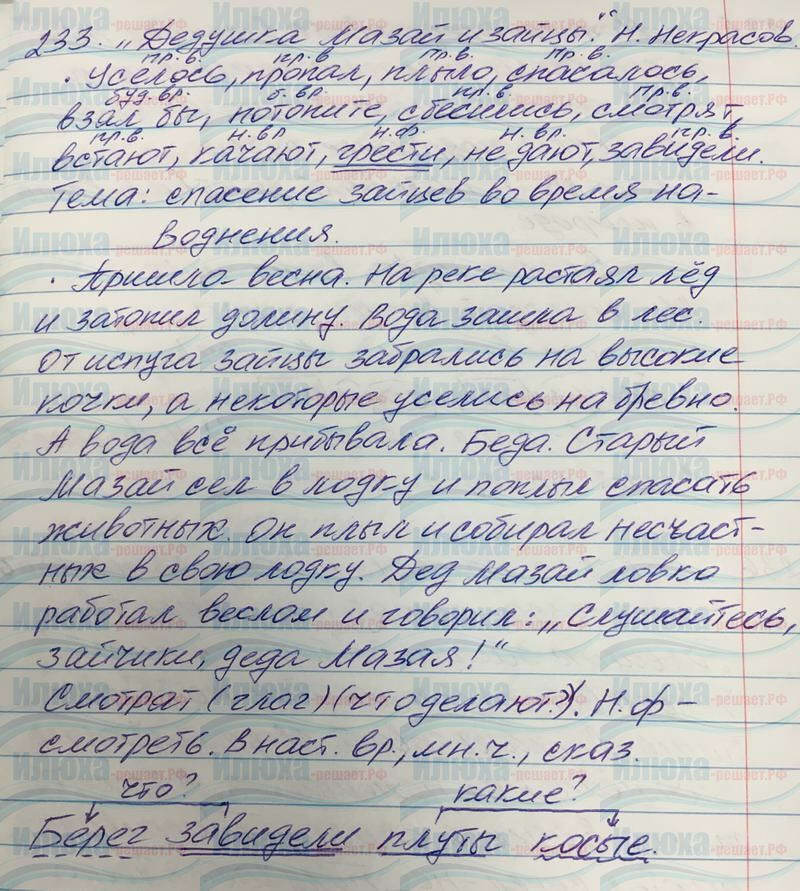 233. „Дедушка Мазай и зайцы." Н. Некрасов.
пр.в. пр.в пр.в. пр.в.
Уселось, пропал, плыло, спасалось,
буд.вр. б.вр. пр.в пр.в.
взял бы, потопите, сбесились, смотрят,
пр.в. н.вр н.ф. н.вр. пр.в.
встают, качают, грести, не дают, завидели.
Тема: спасение зайцев во время на-
воднения.
Пришла весна. На реке растаял лёд
и затопил долину. Вода зашла в лес.
От испуга зайцы забрались на высокие
кочки, а некоторые уселись на бревно.
А вода всё прибывала. Беда. Старый
Мазай сел в лодку и поплыл спасать
животных. Он плыл и собирал несчаст-
ных в свою лодку. Дед Мазай ловко
работал веслом и говорил: „Слушайтесь,
зайчики, деда Мазая!"
Смотрят (глаг) (что делают?). Н.ф -
смотреть. В наст. вр., мн.ч., сказ.
что? какие?
Берег завидели плуты косые.
Илюха-решает.РФ